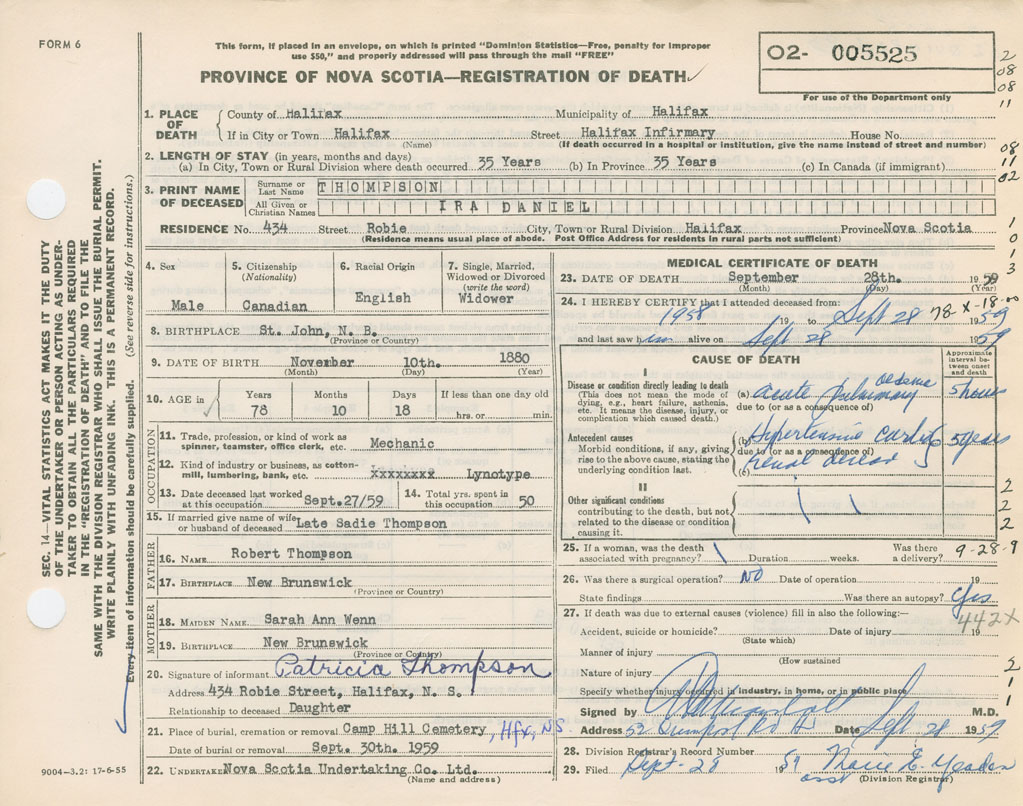 FORM 6
This form, if placed in an envelope, on which is printed "Dominion Statistics—Free, penalty for improper
use $50," and properly addressed will pass through the mail "FREE"
PROVINCE OF NOVA SCOTIA—REGISTRATION OF DEATH
O2- 005525
For use of the Department only
2
08
08
11
08
11
02
1
0
1
3
1. PLACE OF DEATH
County of Halifax Municipality of Halifax
If in City or Town Halifax Street Halifax Infirmary House No.
(Name) (If death occurred in a hospital or institution, give the name instead of street and number)
2. LENGTH OF STAY (in years, months and days)
(a) In City, Town or Rural Division where death occurred 35 Years (b) In Province 35 Years (c) In Canada (if immigrant)
3. PRINT NAME OF DECEASED
Surname or Last Name THOMPSON
All Given or Christian Names IRA DANIEL
RESIDENCE No. 434 Street Robie City, Town or Rural Division Halifax Province Nova Scotia
(Residence means usual place of abode. Post Office Address for residents in rural parts not sufficient)
4. Sex
Male
5. Citizenship
(Nationality)
Canadian
6. Racial Origin
English
7. Single, Married, Widowed or Divorced
(write the word)
Widower
8. BIRTHPLACE St. John, N. B.
(Province or Country)
9. DATE OF BIRTH November 10th. 1880
(Month) (Day) (Year)
10. AGE in
Years Months Days If less than one day old
78 10 18 hrs. or min.
OCCUPATION
11. Trade, profession, or kind of work as
spinner, teamster, office clerk, etc. Mechanic
12. Kind of industry or business, as cotton-
mill, lumbering, bank, etc. xxxxxxxx Lynotype
13. Date deceased last worked
at this occupation Sept.27/59
14. Total yrs. spent in
this occupation 50
15. If married give name of wife
or husband of deceased Late Sadie Thompson
FATHER
16. NAME Robert Thompson
17. BIRTHPLACE New Brunswick
(Province or Country)
MOTHER
18. MAIDEN NAME Sarah Ann Wenn
19. BIRTHPLACE New Brunswick
(Province or Country)
20. Signature of informant Patricia Thompson
Address 434 Robie Street, Halifax, N. S.
Relationship to deceased Daughter
21. Place of burial, cremation or removal Camp Hill Cemetery, Hfx, NS
Date of burial or removal Sept. 30th. 1959
22. UNDERTAKER Nova Scotia Undertaking Co. Ltd.
(Name and address)
MEDICAL CERTIFICATE OF DEATH
23. DATE OF DEATH September 28th. 1959
(Month) (Day) (Year)
24. I HEREBY CERTIFY that I attended deceased from:
78 X-18-00
1958 19 to Sept 28 1959
and last saw him alive on Sept 28 1959
CAUSE OF DEATH
Approximate interval between onset and death
I
Disease or condition directly leading to death
(This does not mean the mode of
dying, e.g., heart failure, asthenia,
etc. It means the disease, injury, or
complication which caused death.)
(a) acute pulmonary oedema 5 hours
due to (or as a consequence of)
Antecedent causes
Morbid conditions, if any, giving
rise to the above cause, stating the
underlying condition last.
(b) Hypertensive cardio 5 years
due to (or as a consequence of)
(c) renal disease
II
Other significant conditions
contributing to the death, but not
related to the disease or condition
causing it.
2
2
2
25. If a woman, was the death
associated with pregnancy? Duration weeks. Was there
a delivery?
9-28-9
26. Was there a surgical operation? NO Date of operation 19
State findings Was there an autopsy? yes
27. If death was due to external causes (violence) fill in also the following:—
442X
Accident, suicide or homicide? Date of injury 19
(State which)
Manner of injury
(How sustained
Nature of injury
Specify whether injury occurred in industry, in home, or in public place
2
1
1
Signed by M.D.
Address 52 Date Sept 28 1959
28. Division Registrar's Record Number
29. Filed Sept- 28 1959 Marie E.
asst (Division Registrar)
SEC. 14—VITAL STATISTICS ACT MAKES IT THE DUTY
OF THE UNDERTAKER OR PERSON ACTING AS UNDER-
TAKER TO OBTAIN ALL THE PARTICULARS REQUIRED
IN THE "REGISTRATION OF DEATH" AND TO FILE THE
SAME WITH THE DIVISION REGISTRAR WHO SHALL ISSUE THE BURIAL PERMIT.
WRITE PLAINLY WITH UNFADING INK. THIS IS A PERMANENT RECORD.
Every item of information should be carefully supplied. (See reverse side for instructions.)
9004-3.2: 17-6-55